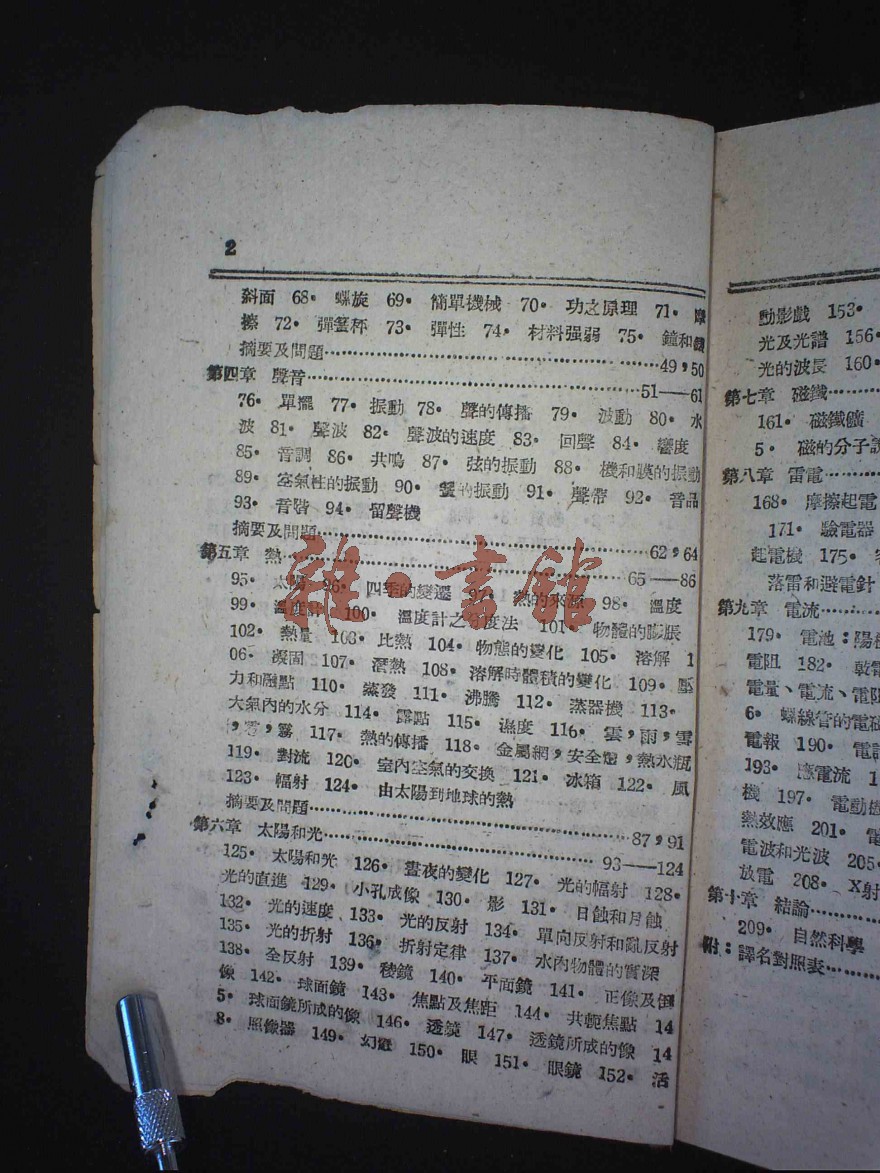 2
斜面 68• 螺旋 69• 簡單機械 70• 功之原理 71• 摩
擦 72• 彈簧秤 73• 彈性 74• 材料强弱 75• 鐘和錶
摘要及問題⋯⋯49,50
第四章 聲音⋯⋯51——61
76• 單擺 77• 振動 78• 聲的傳播 79• 波動 80• 水
波 81• 聲波 82• 聲波的速度 83• 回聲 84• 響度
85• 音調 86• 共鳴 87• 弦的振動 88• 機和膜的振動
89• 空氣柱的振動 90• 的振動 91• 聲帶 92• 音品
93• 音階 94• 留聲機
摘要及問題⋯⋯62,64
第五章 熱⋯⋯65——86
95• 太陽 96• 四季的變遷 97• 熱的來源 98• 溫度
99• 溫度計 100• 溫度計之分度法 101• 物體的膨脹
102• 熱量 103• 比熱 104• 物態的變化 105• 溶解 1
06• 凝固 107• 潛熱 108• 溶解時體積的變化 109• 壓
力和融點 110• 蒸發 111• 沸騰 112• 蒸器機 113•
大氣內的水分 114• 露點 115• 濕度 116• 雲,雨,雪
,雹,霧 117• 熱的傳播 118• 金屬網,安全燈,熱水瓶
119• 對流 120• 室內空氣的交換 121• 冰箱 122• 風
123• 幅射 124• 由太陽到地球的熱
摘要及問題⋯⋯87,91
第六章 太陽和光⋯⋯93——124
125• 太陽和光 126• 晝夜的變化 127• 光的幅射 128•
光的直進 129• 小孔成像 130• 影 131• 日蝕和月蝕
132• 光的速度 133• 光的反射 134• 單向反射和亂反射
135• 光的折射 136• 折射定律 137• 水內物體的實深
138• 全反射 139• 稜鏡 140• 平面鏡 141• 正像及倒
像 142• 球面鏡 143• 焦點及焦距 144• 共軛焦點 14
5• 球面鏡所成的像 146• 透鏡 147• 透鏡所成的像 14
8• 照像器 149• 幻燈 150• 眼 151• 眼鏡 152• 活
動影戲 153•
光及光譜 156•
光的波長 160•
第七章 磁鐵⋯⋯
161• 磁鐵礦
5• 磁的分子說
第八章 雷電⋯⋯
168• 摩擦起電
171• 驗電器
起電機 175•
落雷和避電針
第九章 電流⋯⋯
179• 電池:陽極
電阻 182•
電量、電流、電阻
6• 螺線管的電磁
電報 190• 電話
193• 應電流 1
機 197• 電動機
熱效應 201• 電
電波和光波 205•
放電 208• X射
第十章 結論⋯⋯
209• 自然科學
附:譯名對照表⋯⋯
雜•書館